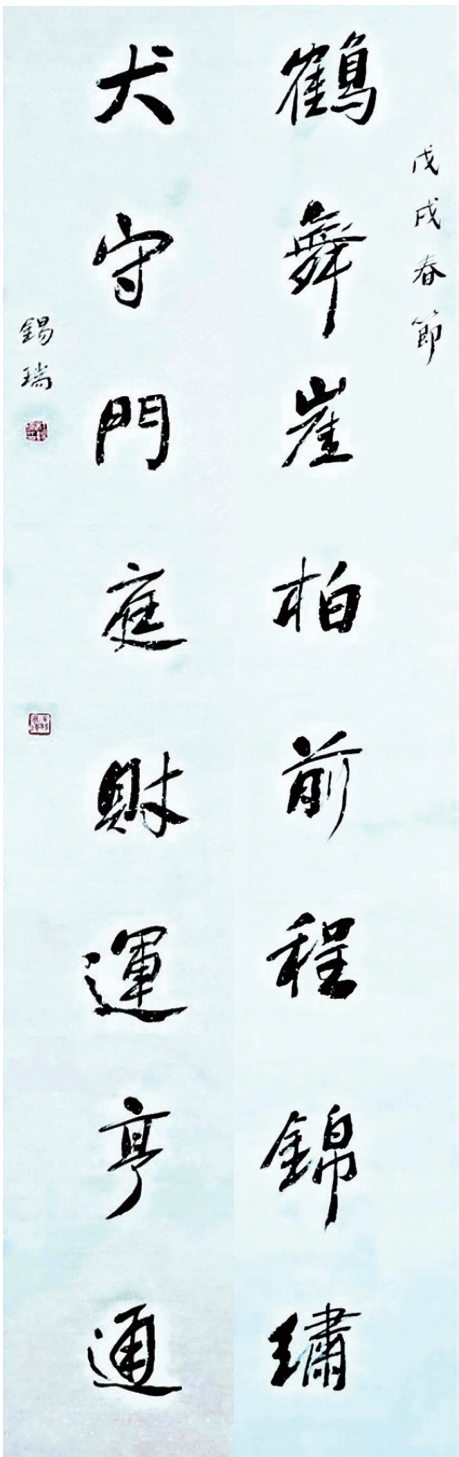 戊戌春節
鶴舞崖柏前程錦繡
犬守門庭財運亨通
錫瑞